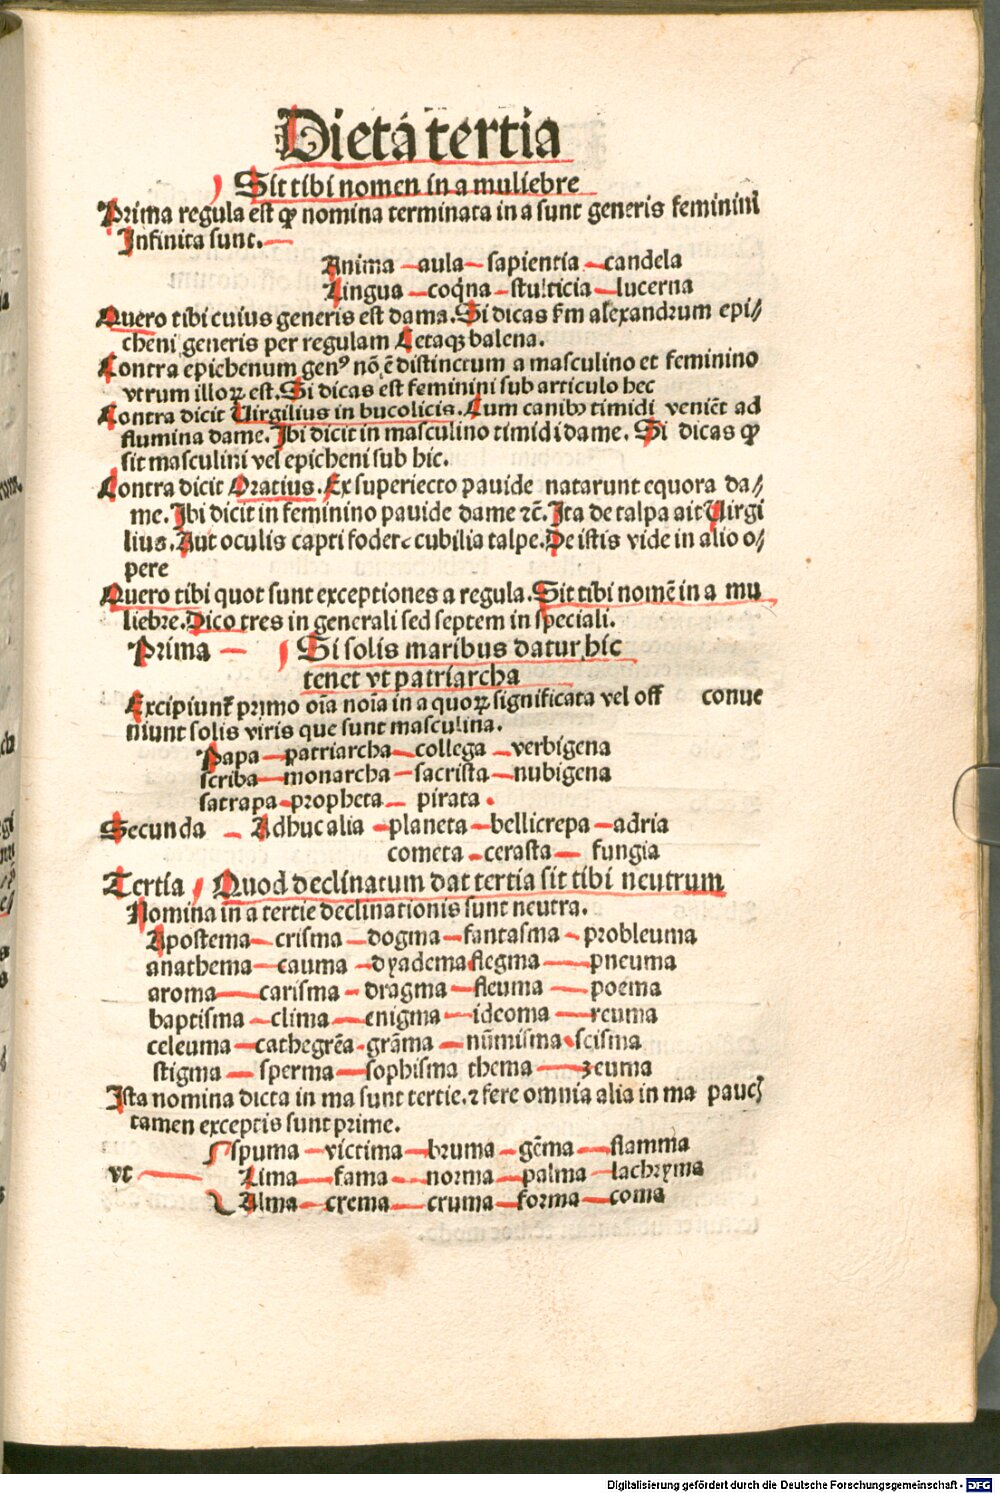 Dieta tertia
Sit tibi nomen in a muliebre
Prima regula est ꝙ nomina terminata in a sunt generis feminini
Infinita sunt.
Anima aula sapientia candela
Lingua coq̄na stulticia lucerna
Quero tibi cuius generis est dama. Si dicas s̄m alexandrum epi⸗
cheni generis per regulam Cetaqꝫ balena.
Contra epichenum genꝰ nō ē distinctum a masculino et feminino
vtrum illoꝝ est. Si dicas est feminini sub articulo hec
Contra dicit Uirgilius in bucolicis. Cum canibꝫ timidi veniēt ad
flumina dame. Ibi dicit in masculino timidi dame. Si dicas ꝙ
sit masculini vel epicheni sub hic.
Contra dicit Oratius. Ex superiecto pauide natarunt equora da⸗
me. Ibi dicit in feminino pauide dame ⁊c̄. Ita de talpa ait Uirgi
lius. Aut oculis capti fodere cubilia talpe. De istis vide in alio o⸗
pere
Quero tibi quot sunt exceptiones a regula. Sit tibi nomē in a mu
liebre. Dico tres in generali sed septem in speciali.
Prima Si solis maribus datur hic
tenet vt patriarcha
Excipiunt᷑ primo oīa noīa in a quoꝝ significata vel off conue
niunt solis viris que sunt masculina.
Papa patriarcha collega verbigena
scriba monarcha sacrista nubigena
satrapa propheta pirata.
Secunda Adhuc alia planeta bellicrepa adria
cometa cerasta fungia
Tertia Quod declinatum dat tertia sit tibi neutrum
Nomina in a tertie declinationis sunt neutra.
Apostema crisma dogma fantasma probleuma
anathema cauma dyadema flegma pneuma
aroma carisma dragma fleuma poema
baptisma clima enigma ideoma reuma
celeuma cathegrēa grāma nūmisma scisma
stigma sperma sophisma thema zeuma
Ista nomina dicta in ma sunt tertie. ⁊ fere omnia alia in ma pauc̄
tamen exceptis sunt prime.
spuma victima bruma gēma flamma
vt Lima fama norma palma lachryma
Alma crema cruma forma coma
Digitalisierung gefördert durch die Deutsche Forschungsgemeinschaft - DFG